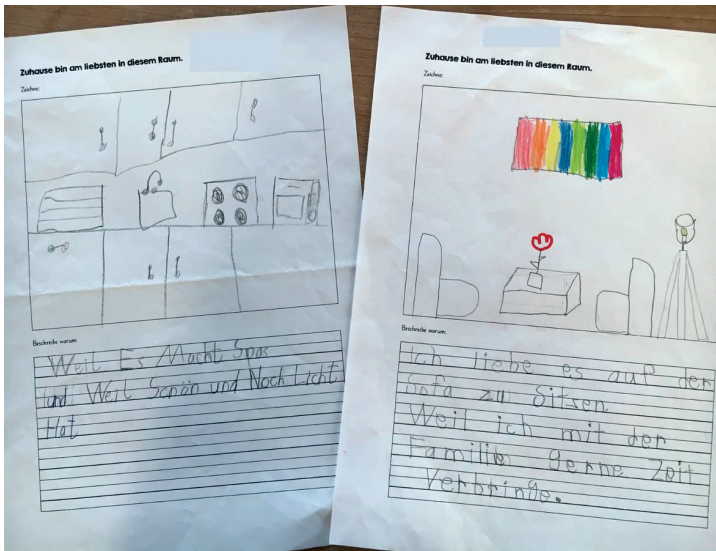 Zuhause bin am liebsten in diesem Raum.
Zeichne:
Beschreibe warum:
Weil Es Macht Spas
und Weil Schön und Noch Licht
Hat
Zuhause bin am liebsten in diesem Raum.
Zeichne:
Beschreibe warum:
Ich liebe es auf der
Sofa zu Sitzen
Weil ich mit der
Familie gerne Zeit
Verbringe.